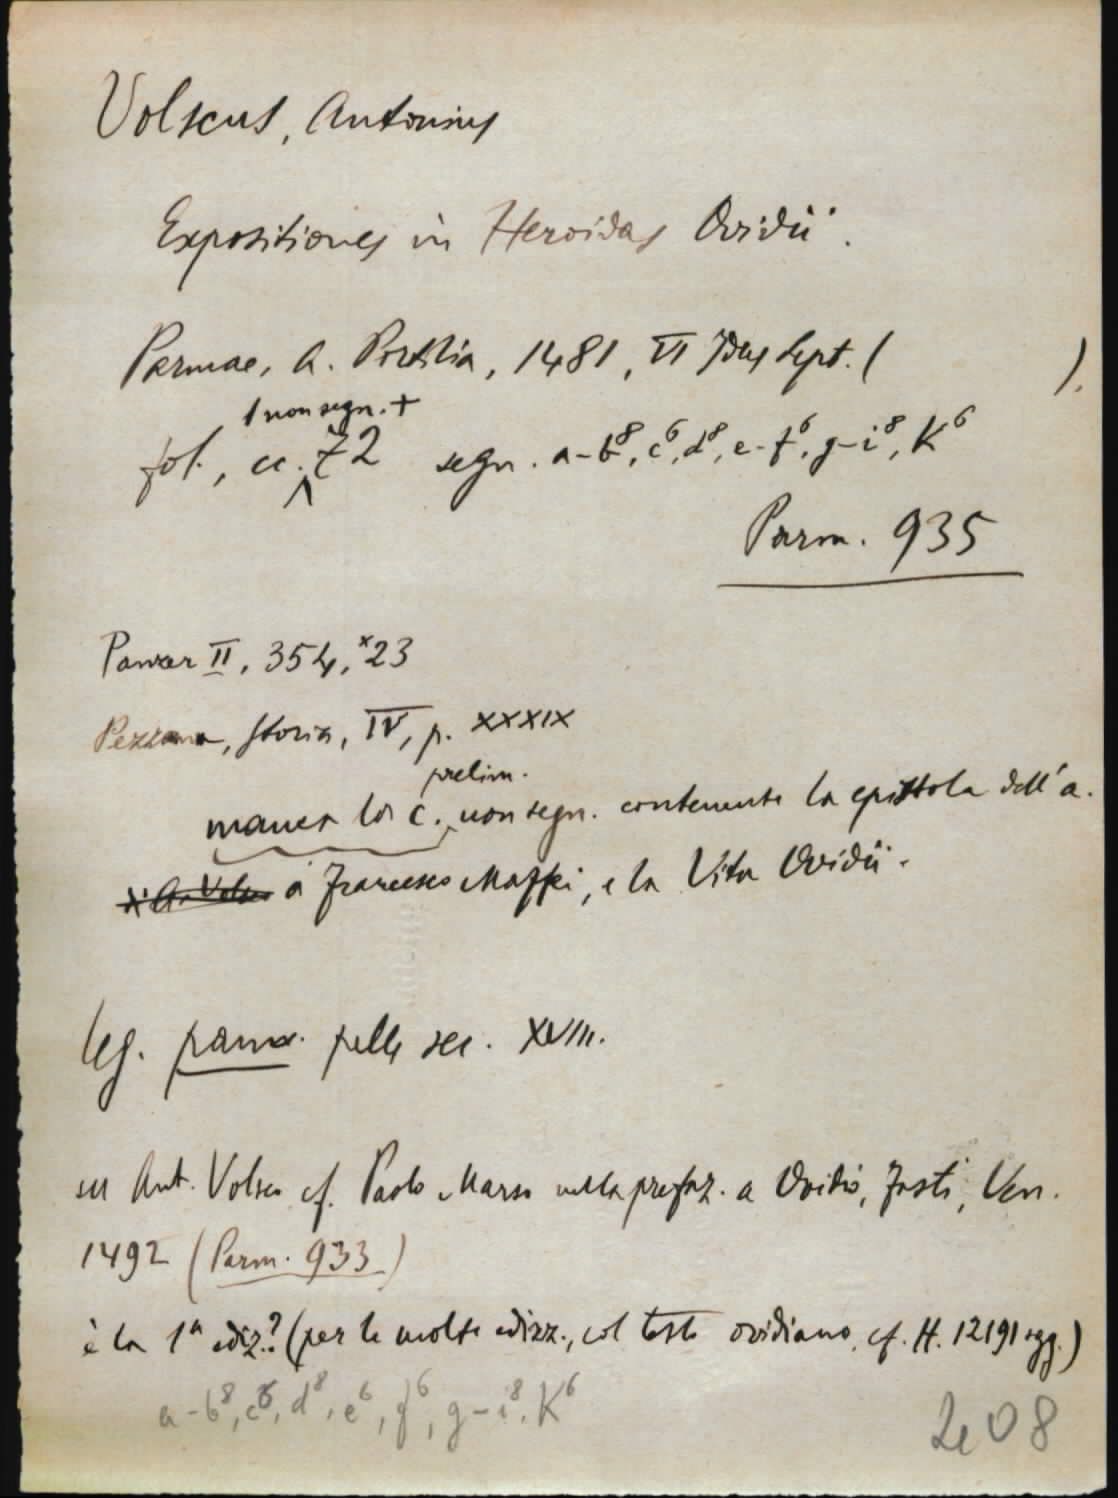 Volscus, Antonius
Expositiones in Heroidas Ovidii.
Parmae, A. Portilia, 1481, VI Idus Sept. ( ).
1 non segn. +
fol., cc. 72 segn. a-b⁸, c⁶, d⁸, e-f⁶, g-i⁸, K⁶
Parm. 935
Panzer II, 354, ˣ23
Pezzana, Storia, IV, p. XXXIX
prelim.
manca la c. non segn. contenente la epistola dell'a.
a Francesco Maffei, e la Vita Ovidii.
leg. parm. pelle sec. XVIII.
su Ant. Volsco cf. Paolo Marso nella prefaz. a Ovidio, Fasti, Ven.
1492 (Parm. 933)
è la 1ª ediz.? (per le molte edizz., col testo ovidiano, cf. H. 12191 sgg.)
a-b⁸, c⁶, d⁸, e⁶, f⁶, g-i⁸, K⁶
208